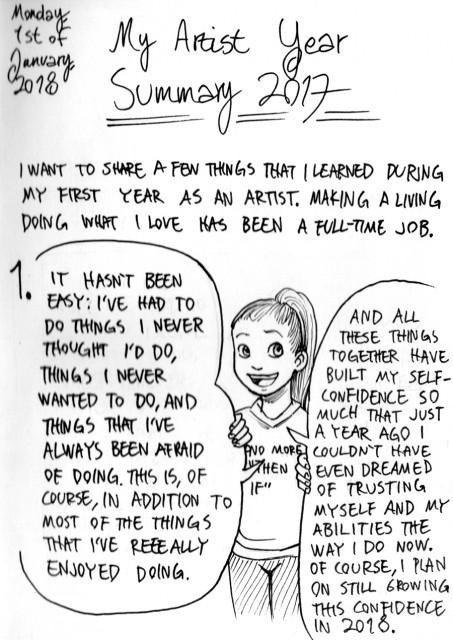 Monday
1st of
January
2018
My Artist Year
Summary 2017
I WANT TO SHARE A FEW THINGS THAT I LEARNED DURING
MY FIRST YEAR AS AN ARTIST. MAKING A LIVING
DOING WHAT I LOVE HAS BEEN A FULL-TIME JOB.
1.
IT HASN'T BEEN
EASY: I'VE HAD TO
DO THINGS I NEVER
THOUGHT I'D DO,
THINGS I NEVER
WANTED TO DO, AND
THINGS THAT I'VE
ALWAYS BEEN AFRAID
OF DOING. THIS IS, OF
COURSE, IN ADDITION TO
MOST OF THE THINGS
THAT I'VE REEEALLY
ENJOYED DOING.
NO MORE
"THEN
IF"
AND ALL
THESE THINGS
TOGETHER HAVE
BUILT MY SELF-
CONFIDENCE SO
MUCH THAT JUST
A YEAR AGO I
COULDN'T HAVE
EVEN DREAMED
OF TRUSTING
MYSELF AND MY
ABILITIES THE
WAY I DO NOW.
OF COURSE, I PLAN
ON STILL GROWING
THIS CONFIDENCE
IN 2018.